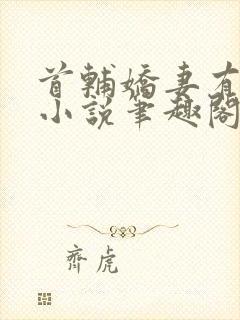 首輔嬌妻有
小說筆趣閣
齊虎